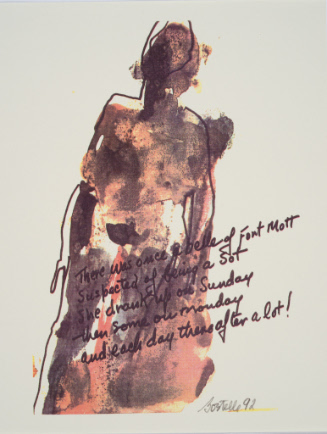 There was once a belle of Font Mott
Suspected of being a Sot
She drank up on Sunday
then some on monday
and each day thereafter a lot!
92